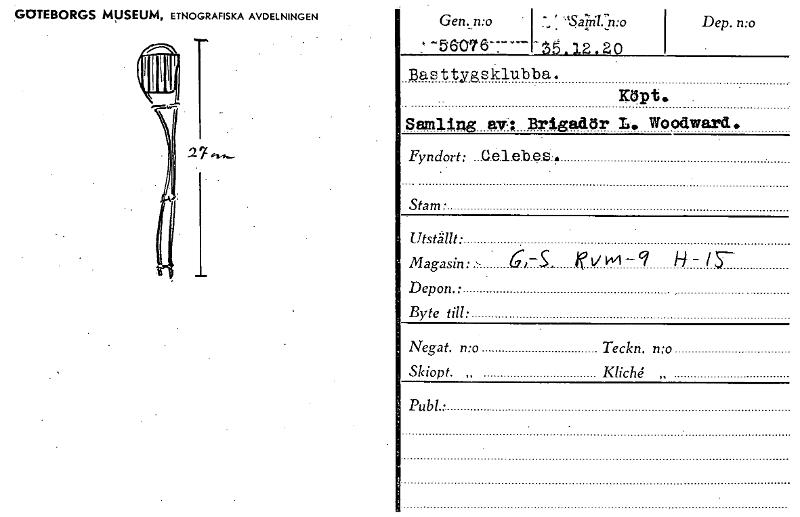 GÖTEBORGS MUSEUM, ETNOGRAFISKA AVDELNINGEN
27 cm
Gen. n:o Saml. n:o Dep. n:o
56076 35.12.20
Basttygsklubba.
Köpt.
Samling av: Brigadör L. Woodward.
Fyndort: Celebes.
Stam:
Utställt:
Magasin: G.-S. Rum-9 H-15
Depon.:
Byte till:
Negat. n:o Teckn. n:o
Skiopt. „ Kliché „
Publ.: